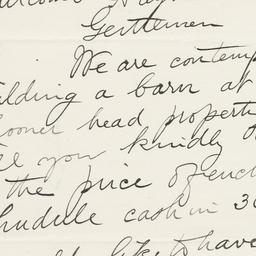 Gentlemen
We are contemp
ilding a barn at
ooner head propert
ll you kindly
the price of enc
hedule cash in 30
like to have